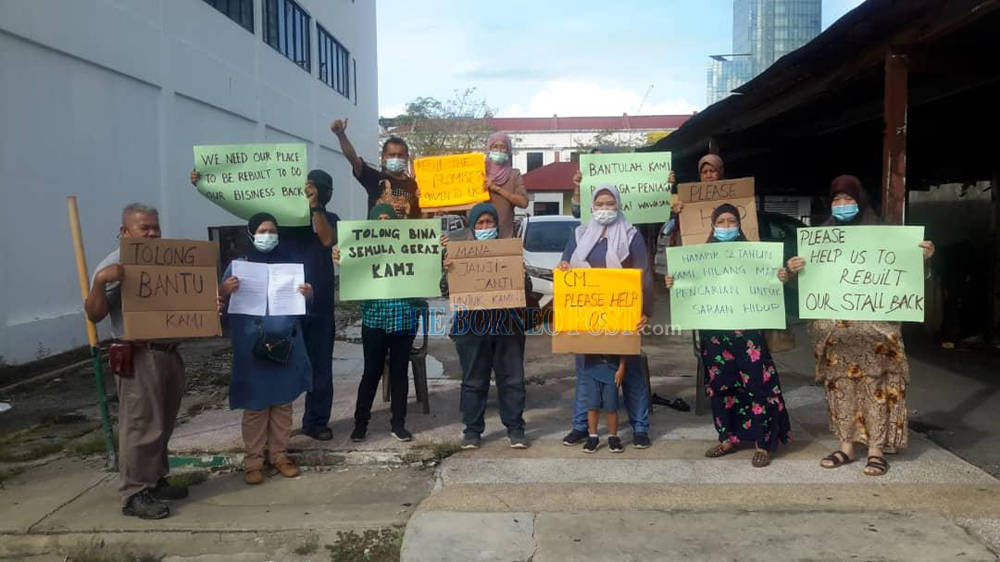 WE NEED OUR PLACE
TO BE REBUILT TO DO
OUR BISINESS BACK
THE
PROMISES
GIVEN TO US
BANTULAH KAMI
WAWASAN
PLEASE
TOLONG
BANTU
KAMI
TOLONG BINA
SEMULA GERAI
KAMI
MANA
JANJI-
JANJI
UNTUK KAMI
CM....
PLEASE HELP
US
HAMPIR 2 TAHUN
KAMI HILANG MATA
PENCARIAN UNTUK
SARAAN HIDUP
PLEASE
HELP US TO
REBUILT
OUR STALL BACK
THE BORNEO POST.com